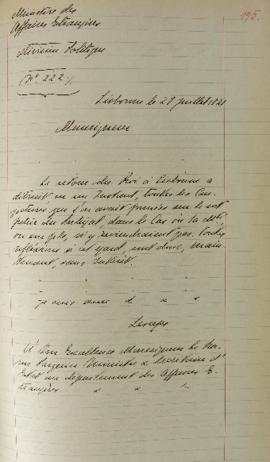 Ministère des
Affaires Etrangères
195.
Direction Politique
(N° 222)
Lisbonne le 28 juillet 1821
Monseigneur
Le retour du Roi à Lisbonne a
détruit en un instant, toutes les Con-
jectures que l'on avait formées sur le sort
futur du Portugal, dans le Cas où Sa Majesté
ou son fils, n'y reviendraient pas. Toutes
réflexions à cet égard, sont donc, main-
tenant, sans intérêt.
j'ai
Lesseps
A Son Excellence Monseigneur le
Ministre & Secrétaire d'
Etat au département des Affaires E-
trangères